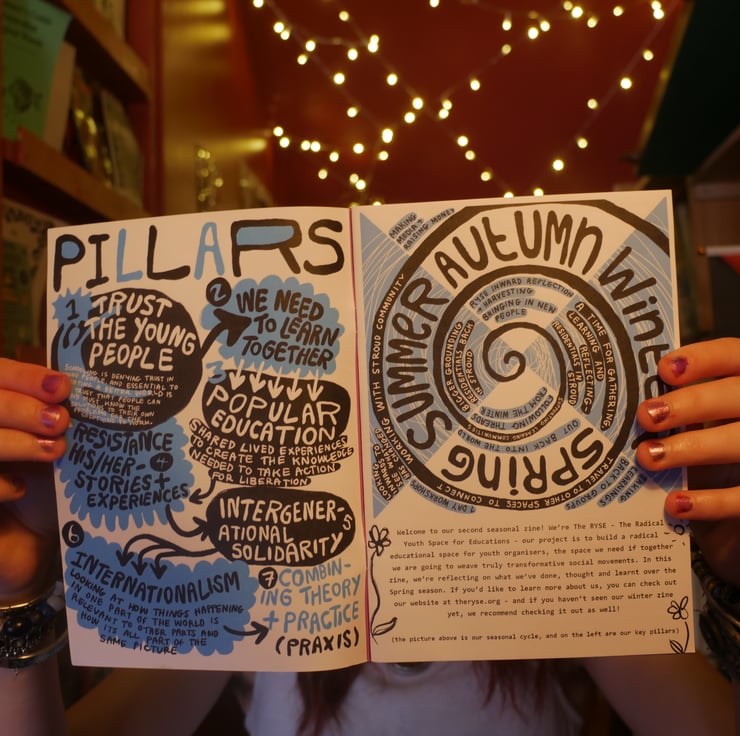 PILLARS
1
TRUST
THE YOUNG
PEOPLE
2
WE NEED
TO LEARN
TOGETHER
3
POPULAR
EDUCATION
SHARED LIVED EXPERIENCES
TO CREATE THE KNOWLEDGE
NEEDED TO TAKE ACTION
FOR LIBERATION
RESISTANCE
HIS/HER- 4
STORIES +
EXPERIENCES
INTERGENER- 5
ATIONAL
SOLIDARITY
6
INTERNATIONALISM
LOOKING AT HOW THINGS HAPPENING
IN ONE PART OF THE WORLD IS
RELEVANT TO OTHER PARTS AND
HOW ITS ALL PART OF THE
SAME PICTURE
7 COMBIN-
ING THEORY
+ PRACTICE
(PRAXIS)
MAKING
MEDIA +
RAISING MONEY
SUMMER AUTUMN WINTE
SPRING
RYSE INWARD REFLECTION
+ HARVESTING
BRINGING IN NEW
PEOPLE
A TIME FOR GATHERING
LEARNING AND
REFLECTING-
RESIDENTIALS IN
STROUD
BIGGER GROUNDING
RESIDENTIALS BACK
IN STROUD
FROM THE WINTER
OUR BACK INTO THE WORLD
WORKING WITH STROUD COMMUNITY
1 DAY WORKSHOPS
TRAVEL TO OTHER SPACES TO CONNECT
TAKING
LEARNINGS
BACK TO GROUPS
Welcome to our second seasonal zine! We're The RYSE - The Radical
Youth Space for Educations - our project is to build a radical
educational space for youth organisers, the space we need if together
we are going to weave truly transformative social movements. In this
zine, we're reflecting on what we've done, thought and learnt over the
Spring season. If you'd like to learn more about us, you can check out
our website at theryse.org - and if you haven't seen our winter zine
yet, we recommend checking it out as well!
(the picture above is our seasonal cycle, and on the left are our key pillars)